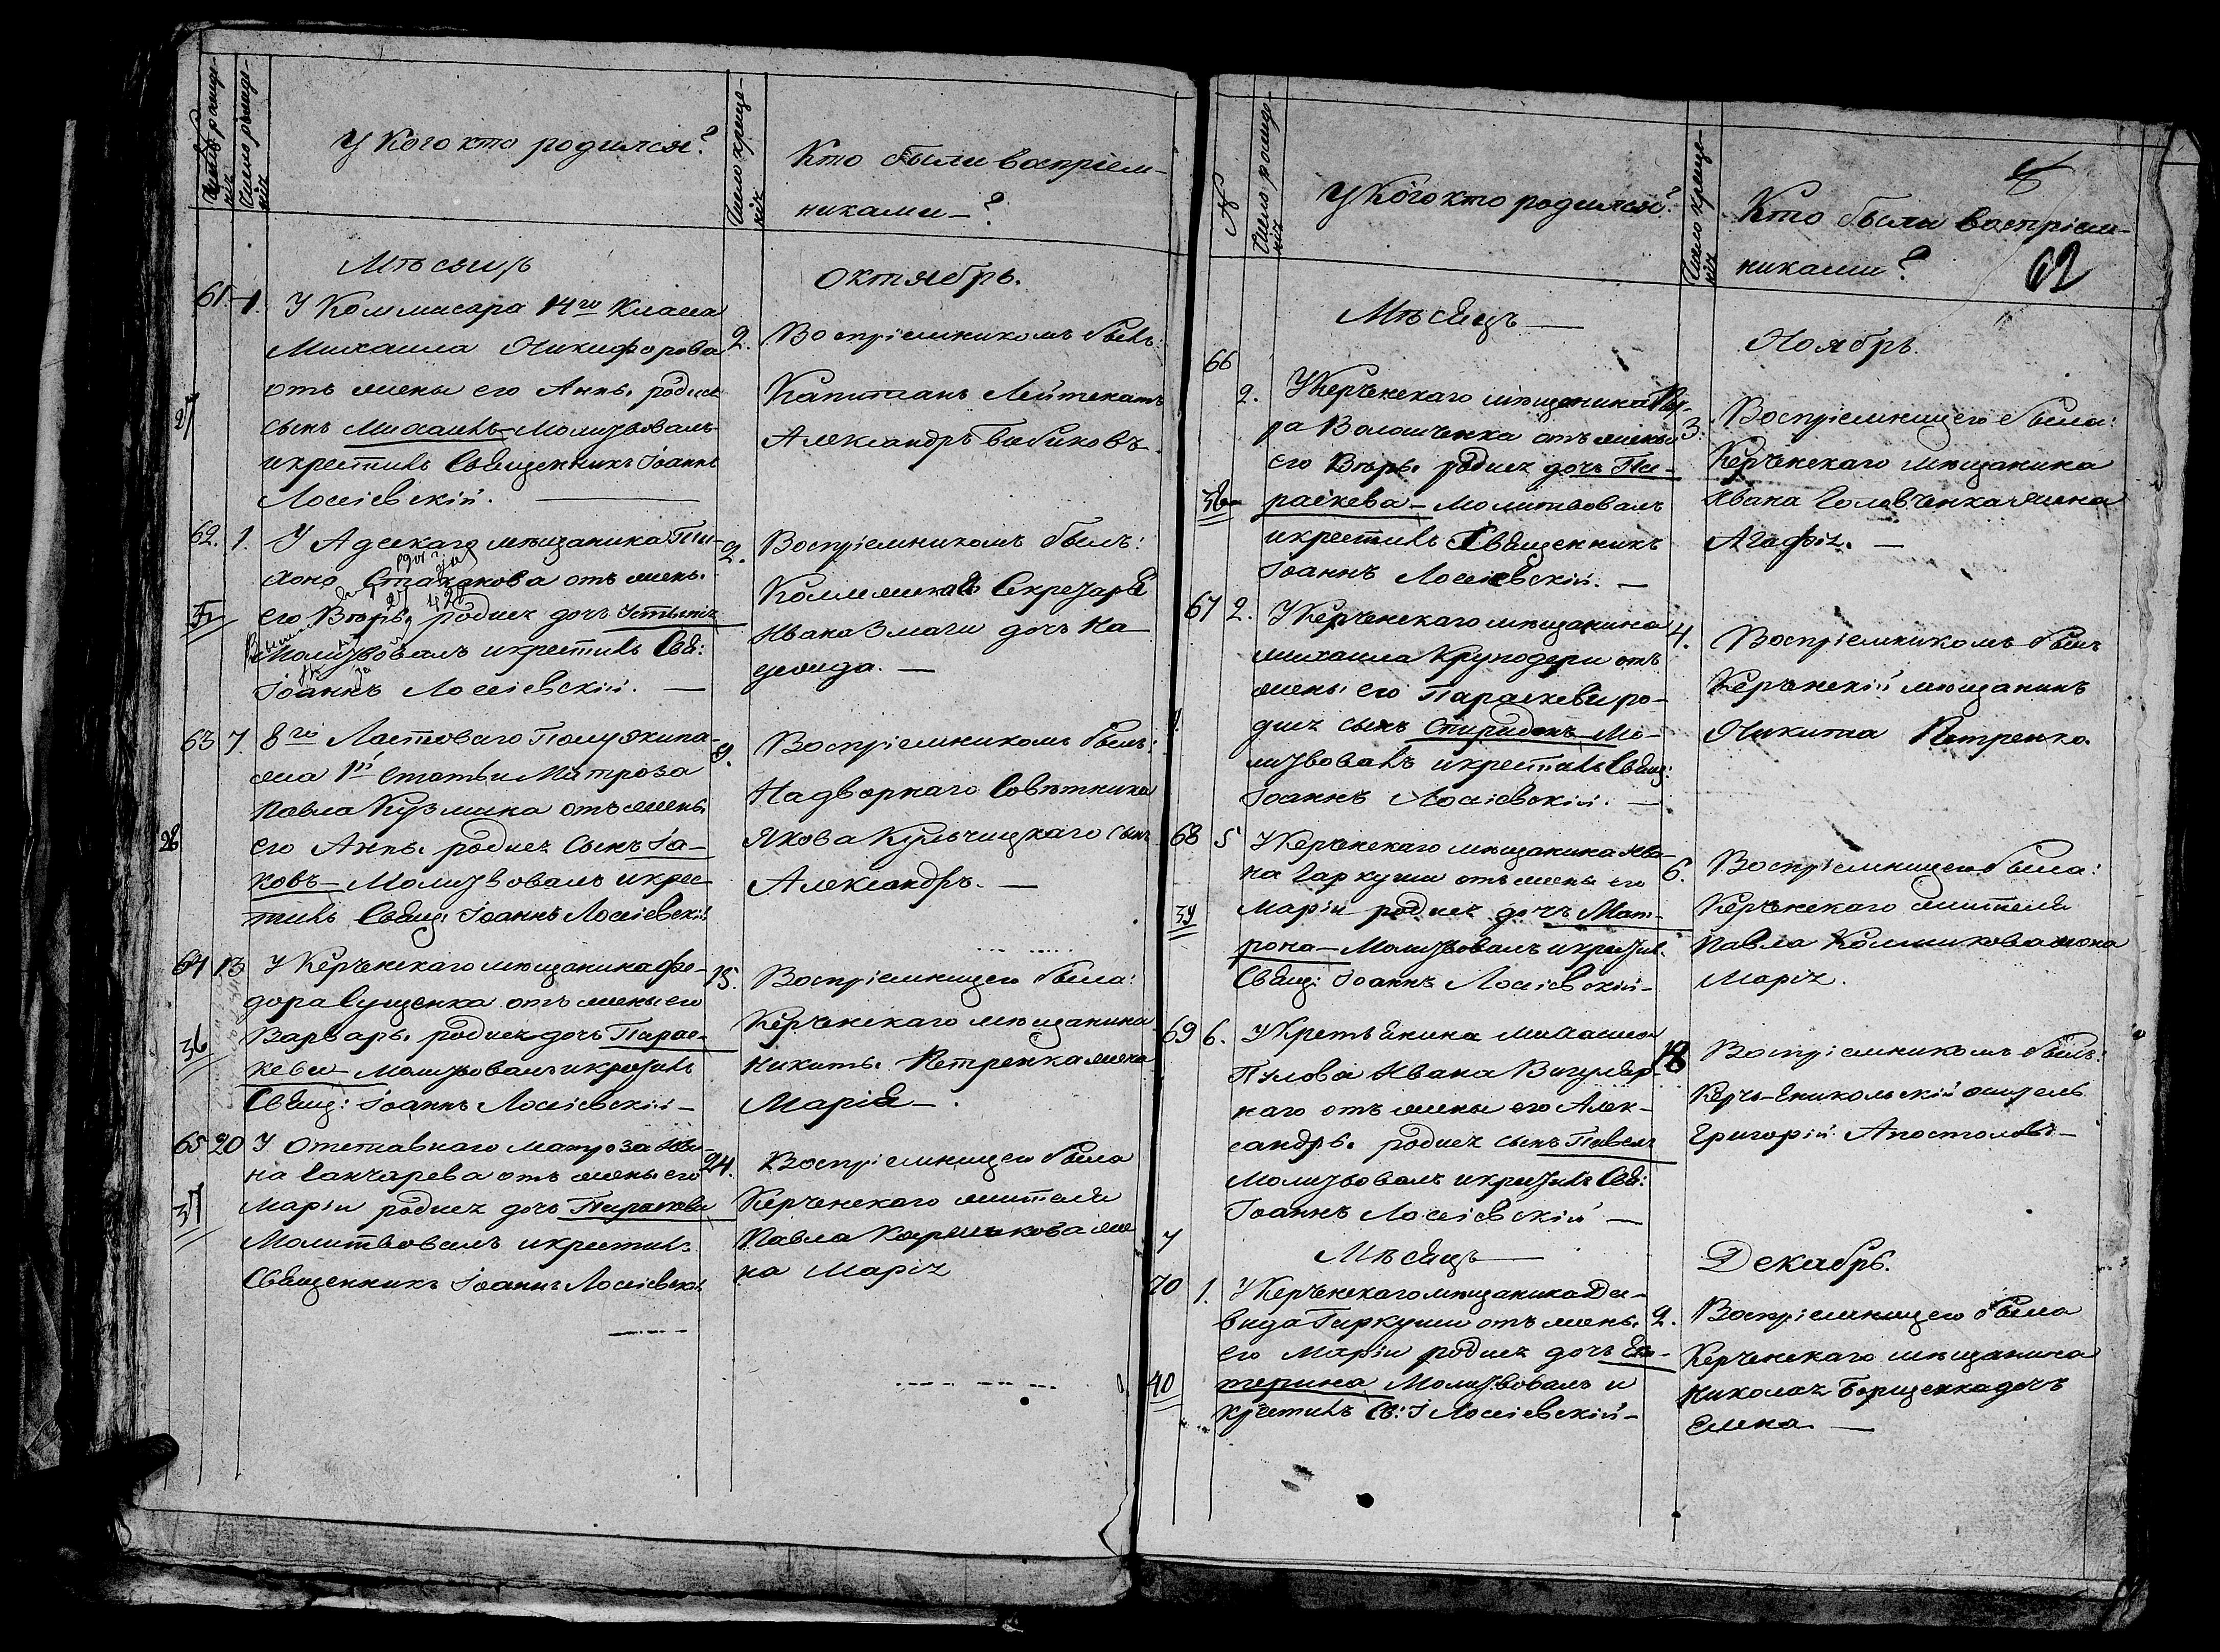 Число рожде-
нія
У Кого кто родился?
Число креще-
нія
Кто были воспріем-
никами – ?
Мѣсяцъ
Октябрь.
61. 1. У Коммисара 14го Класса
Михаила Никифорова
отъ жены его Анны родися
27
сынъ Михаилъ – Молитвовалъ
и крестилъ Священникъ Іоаннъ
Лосіевскій.
2. Воспріемникомъ былъ:
Капитанъ Лейтенантъ
Александръ Бибиковъ
62. 1. У Адескаго мѣщанина Ти-
хона Стаканова отъ жены
35
его Вѣры родися дочь Устинія
Молитвовалъ и крестилъ Свя:
Іоаннъ Лосіевскій. —
2. Воспріемникомъ былъ:
Коллежскаго Секретаря
Ивана Змаги дочь На
дежда. —
63 7. 8го Ластоваго Полуэкипа-
жа 1й статьи Матроза
Павла Кузмина отъ жены
28
его Анны родися Сынъ Іа-
ковъ – Молитвовалъ и крес
тилъ Свящ: Іоаннъ Лосіевскій
9. Воспріемникомъ былъ:
Надворнаго Совѣтника
Якова Кульчицкаго сынъ
Александръ. —
64 13 У Керченскаго мѣщанина Фе-
дора Сущенка отъ жены его
36
Варвары родися дочь Парас-
кева – молитвовалъ и крестилъ
Свящ: Іоаннъ Лосіевскій –
15. Воспріемницею была:
Керченскаго мѣщанина
Никиты Петренка жена
Марія –.
65 20 У Отставнаго матроза Ива
на Ганчарева отъ жены его
37
Маріи родися дочь Параскева
Молитвовалъ и крестилъ
Священникъ Іоаннъ Лосіевскій
24. Воспріемницею была
Керченскаго жителя
Павла жe
на Марія
№
Число рожде-
нія
У Кого кто родился?
Число креще-
нія
Кто были воспріем-
никами?
62
Мѣсяцъ —
Ноябрь.
66
2. У Керченскаго мѣщанина
Волошенка отъ жены
его Вѣры родися дочь Па-
38
раскева – Молитвовалъ
и крестилъ Священникъ
Іоаннъ Лосіевскій. —
3. Воспріемницею была:
Керченскаго мѣщанина
Ивана Головченка жена
Агафія. —
67 2. У Керченскаго мѣщанина
Михаила Круподери отъ
жены его Параскевы ро-
дися сынъ Спиридонъ Мо-
литвовалъ и крестилъ Свящ:
Іоаннъ Лосіевскій. —
4. Воспріемникомъ былъ
Керченскій мѣщанинъ
Никита Петренко.
68 5 У Керченскаго мѣщанина Ива-
на Гаркуши отъ жены его
39
Маріи родися дочь Мат-
рона – Молитвовалъ и крестил.
Свящ: Іоаннъ Лосіевскій –
6. Воспріемницею была:
Керченскаго жителя
Павла жена
Марія.
69 6. У Крестьянина Михаила
Ивана
наго отъ жены его Алек-
сандры родися сынъ Павелъ
Молитвовалъ и крестилъ Свя:
Іоаннъ Лосіевскій —
18 Воспріемникомъ былъ:
Керчь-Еникольскій житель
Григорій Апостоловъ –
Мѣсяцъ —
Декабрь.
70 1. У Керченскаго мѣщанина Да-
вида Гаркуши отъ жены
его Маріи родися дочь Ека-
40
терина Молитвовалъ и
крестилъ Св: І Лосіевскій –
2. Воспріемницею была
Керченскаго мѣщанина
Николая Борщенка дочь
Елена —